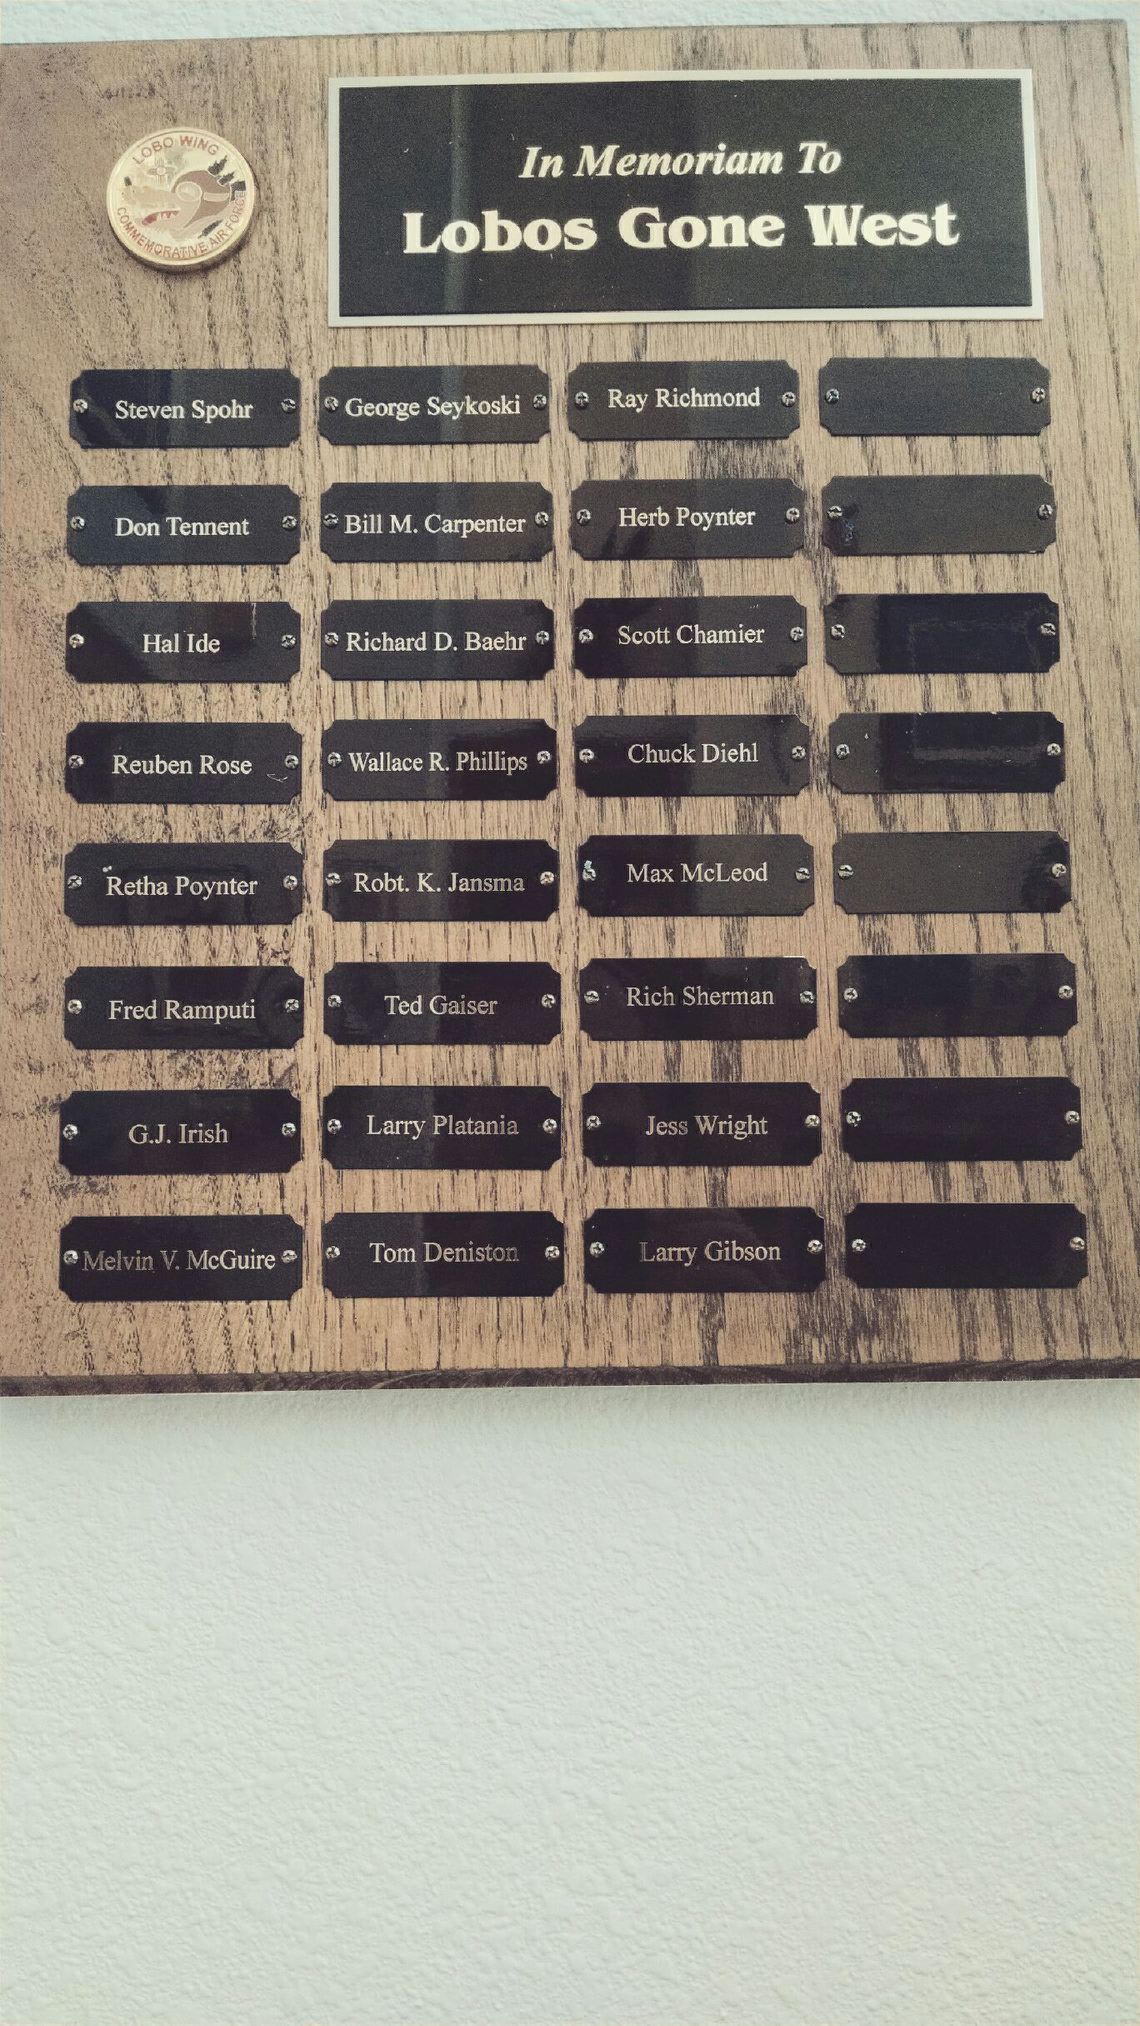 LOBO WING
COMMEMORATIVE AIR FORCE
In Memoriam To
Lobos Gone West
Steven Spohr
George Seykoski
Ray Richmond
Don Tennent
Bill M. Carpenter
Herb Poynter
Hal Ide
Richard D. Baehr
Scott Chamier
Reuben Rose
Wallace R. Phillips
Chuck Diehl
Retha Poynter
Robt. K. Jansma
Max McLeod
Fred Ramputi
Ted Gaiser
Rich Sherman
G.J. Irish
Larry Platania
Jess Wright
Melvin V. McGuire
Tom Deniston
Larry Gibson